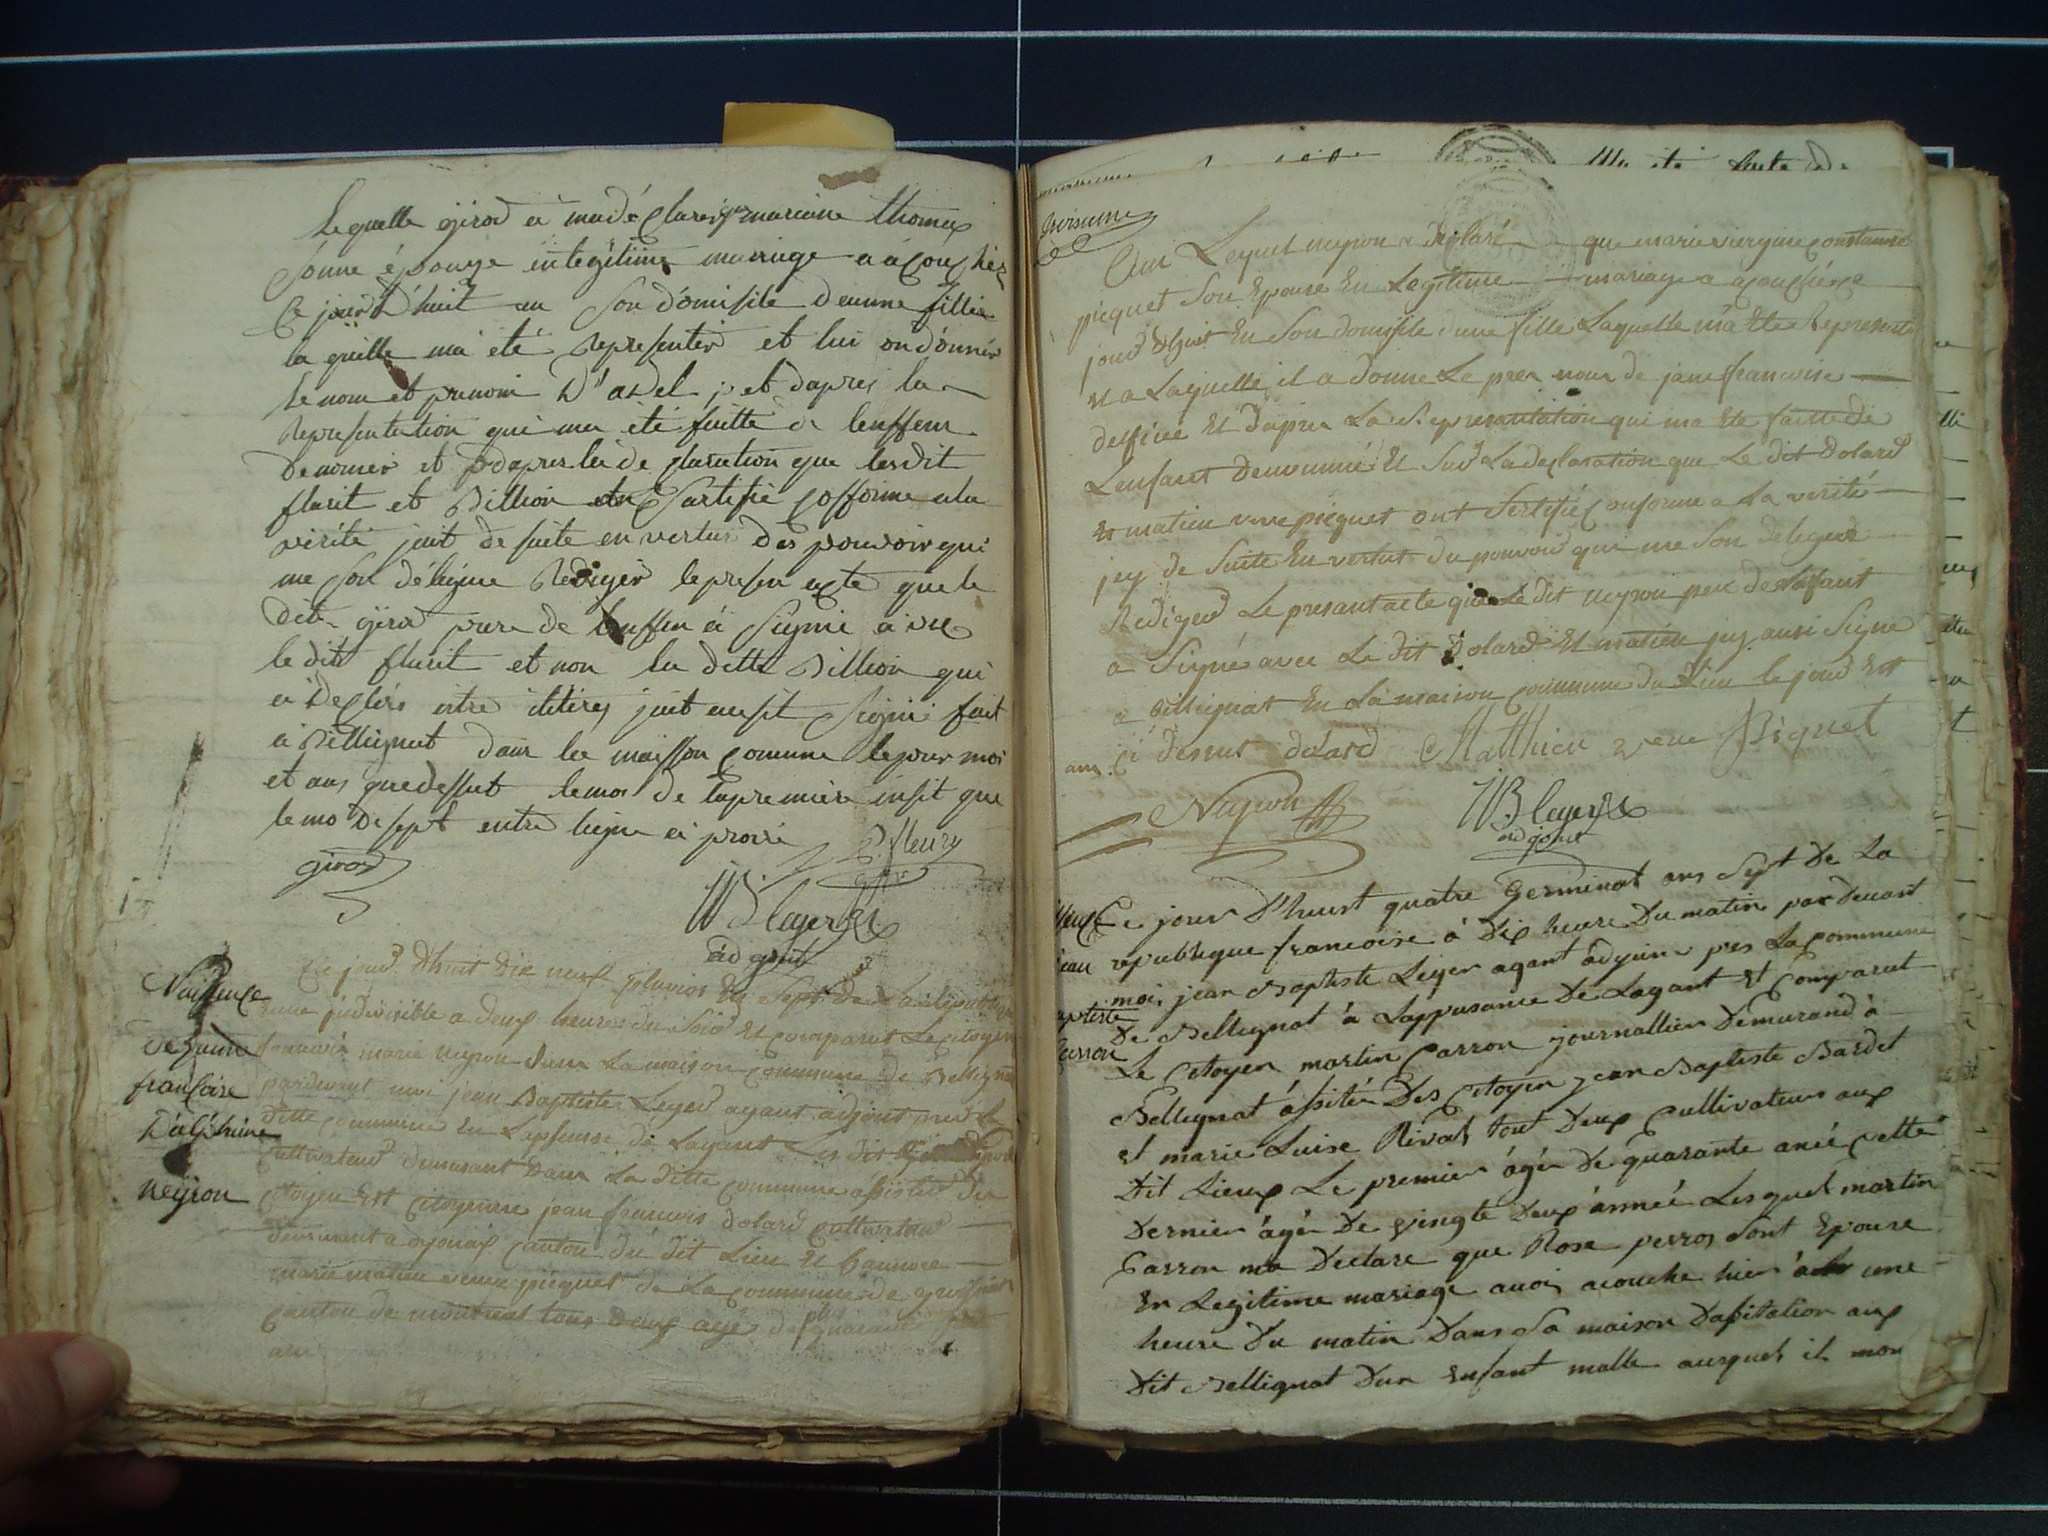 Lequelle girod a ma déclaré que mariane thomas
sonne épouze in legitime mariage a acouchér
Ce jourd'huit en son domisile deunne fillie
la quille ma été Representér et lui on donnér
le nom et prenom D'adel ; et dapres la
Representution qui ma été fuitte de lenffem
denomér et dapres la de claration que lesdit
flurit et Billion on Sartifié cofforme ala
vérité jait de suite en vertus des pouvoir qui
me son délégue Rediger le presen acte que le
dit girod pere de lenffen a Signié avec
le dit flurit et non la ditte Billion qui
a déclére
jait ausit Signié fait
a Bellignat dans la maisson comune le jour moi
et ans que dessut le mos de lapremiere insit que
le mo de sept entre ligne a prové
girod
P. fleury
JB Leger
ad goint
Naissance
De janne
françoise
Délphine
Neyron
Ce jourd'huit dix neuf pluvios en sept de la Republique
une indivisible a deux heures du Soir Et comparut Le citoyen
francois marie neyron dans La maison commune de Bellignat
pardevant moi jean Baptiste Leger agant adjoint de la
ditte commune En Lapsense de Lagant Le dit
Cultivateur demurant dans La ditte commune assisté du
citoyen Est citoyenne jean francois dolard cultivateur
demurant a oyonax canton du dit Lieu Et
marie matieu veuve picquet de La commune de
canton de tous deux agés de plus quarante
ans
Groissiame
Au Lequel neyron a declaré que marie virginie constance
picquet Son Epouse En Legitime mariage a acouchée ce
jourd'huit En Son domisile d'une fille Laquelle m'a Ete Represente
et a Laquelle il a donne Le pren nom de jane francoise
delfine Et dapres La Representation qui ma Ete faitte de
Lenfant denommé Et Sur La declaration que Le dit dolard
Et matieu veuve picquet ont Sertifié conforme a La verité
jey de Suite En vertut du pouvoir qui me Son delegue
Rediger Le presant acte que Le dit neyron pere de Lenfant
a Signé avec Le dit Dolard Et matieu jey ausi Signe
a Bellignat En La maison commune du Lieu le jour Est
ans ci dessus dolard Matthieu veuve Piquet
Neyron
JB Leger
ad joint
Ce jour d'huit quatre Germinal ans Sept de La
republique francoise à dix heure du matin par devant
moi jean Baptiste Leger agant adjoint pres La commune
De Bellignat à Lappsance De Lagant Et Comparut
Le Citoyen martin Carron journallier Demurand à
Bellignat assitér Des Citoyen jean Baptiste Bardet
et marie Luise Rivat tout Deux Cultivateurs aux
dit Lieux Le premier àgér De quarante aneé cette
Dernier àgér De vingte Deux année Lesquel martin
Carron ma Declare que Rose perros Sont Epouse
En Legitime mariage avoi acouche hier à une
heure Du matin Dans Sa maison Dabitation aux
Dit Bellignat Dun Enfant malle auxquel il mon